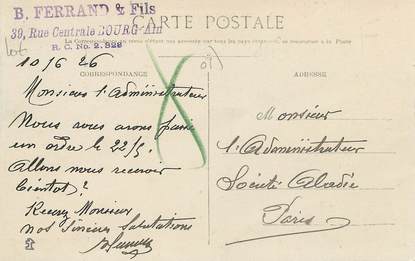 B. FERRAND & Fils
39, Rue Centrale BOURG-Ain
R. C. No. 2.828
CARTE POSTALE
La Correspondance au recto n'est pas acceptée par tous les pays étrangers (Se renseigner à la Poste)
CORRESPONDANCE
ADRESSE
10/6 26
Monsieur l'administrateur
Nous vous avons passé
un ordre le 22/5.
Allons nous recevoir
bientôt?
Recevez Monsieur
nos Sincères Salutations
Monsieur
l'Administrateur
Société Abadie
Paris